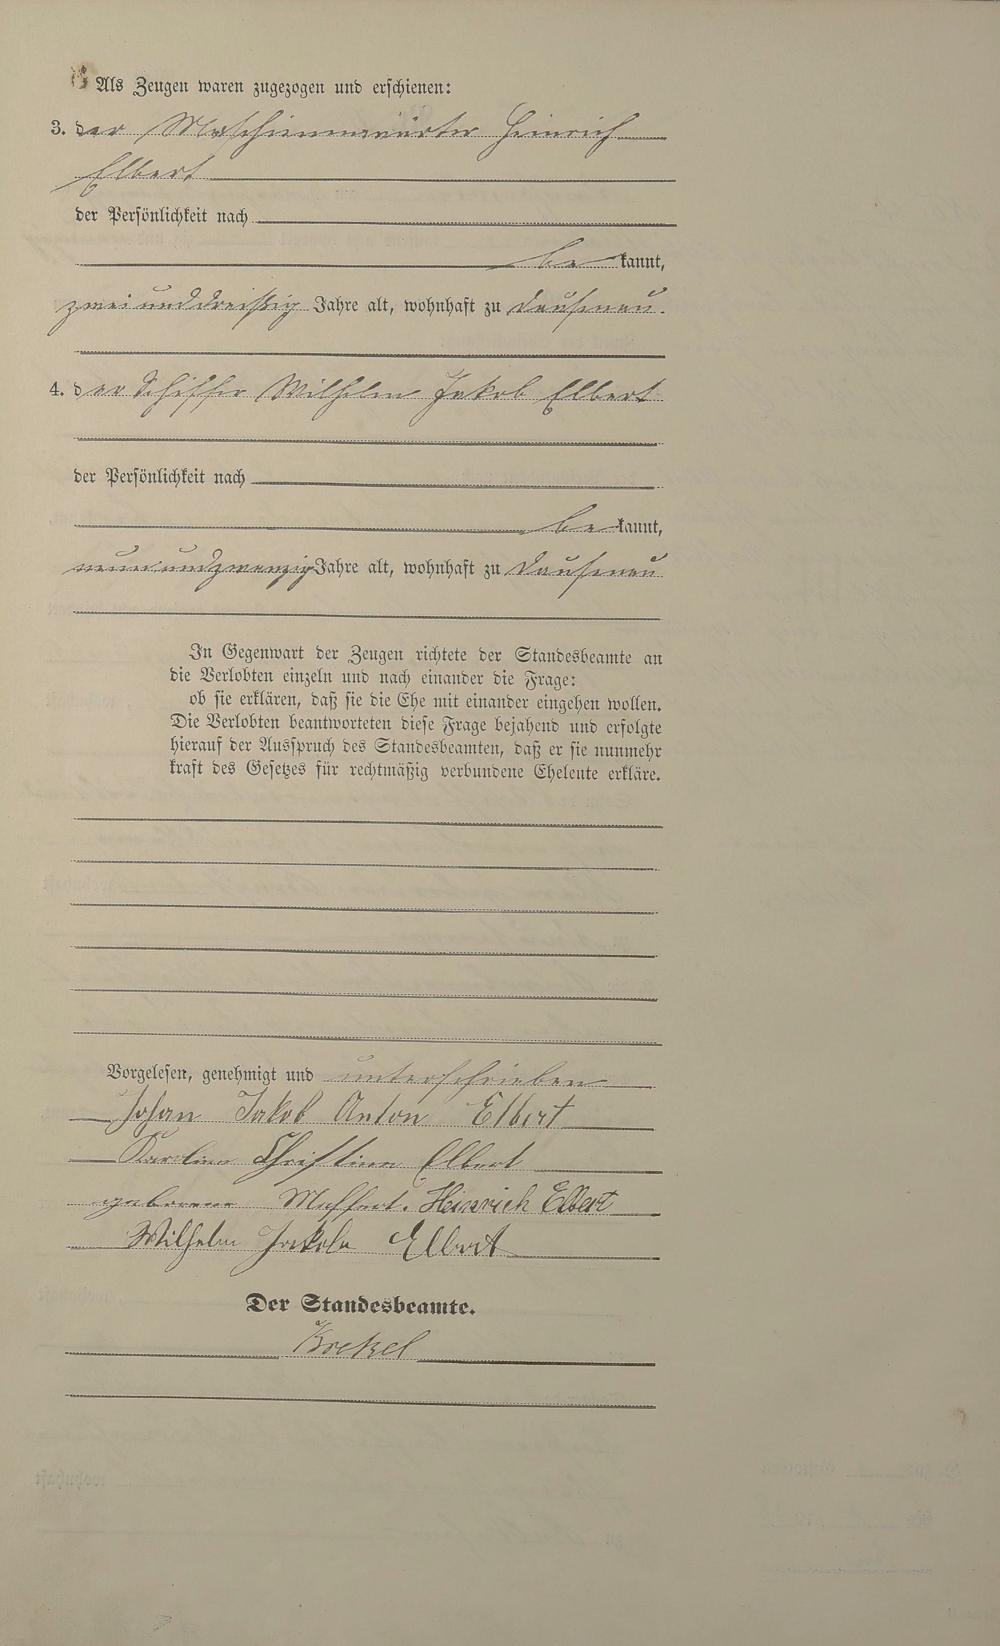 Als Zeugen waren zugezogen und erschienen:
3. der Maschinenwärter Heinrich
Elbert
der Persönlichkeit nach
be kannt,
zweiunddreißig Jahre alt, wohnhaft zu Dausenau.
4. der Schiffer Wilhelm Jakob Elbert
der Persönlichkeit nach
be kannt,
neunundzwanzig Jahre alt, wohnhaft zu Dausenau
In Gegenwart der Zeugen richtete der Standesbeamte an
die Verlobten einzeln und nach einander die Frage:
ob sie erklären, daß sie die Ehe mit einander eingehen wollen.
Die Verlobten beantworteten diese Frage bejahend und erfolgte
hierauf der Ausspruch des Standesbeamten, daß er sie nunmehr
kraft des Gesetzes für rechtmäßig verbundene Eheleute erkläre.
Vorgelesen, genehmigt und unterschrieben
Johan Jakob Anton Elbert
Karoline Christine Elbert
geborene Heinrich Elbert
Wilhelm Jakob Elbert
Der Standesbeamte.